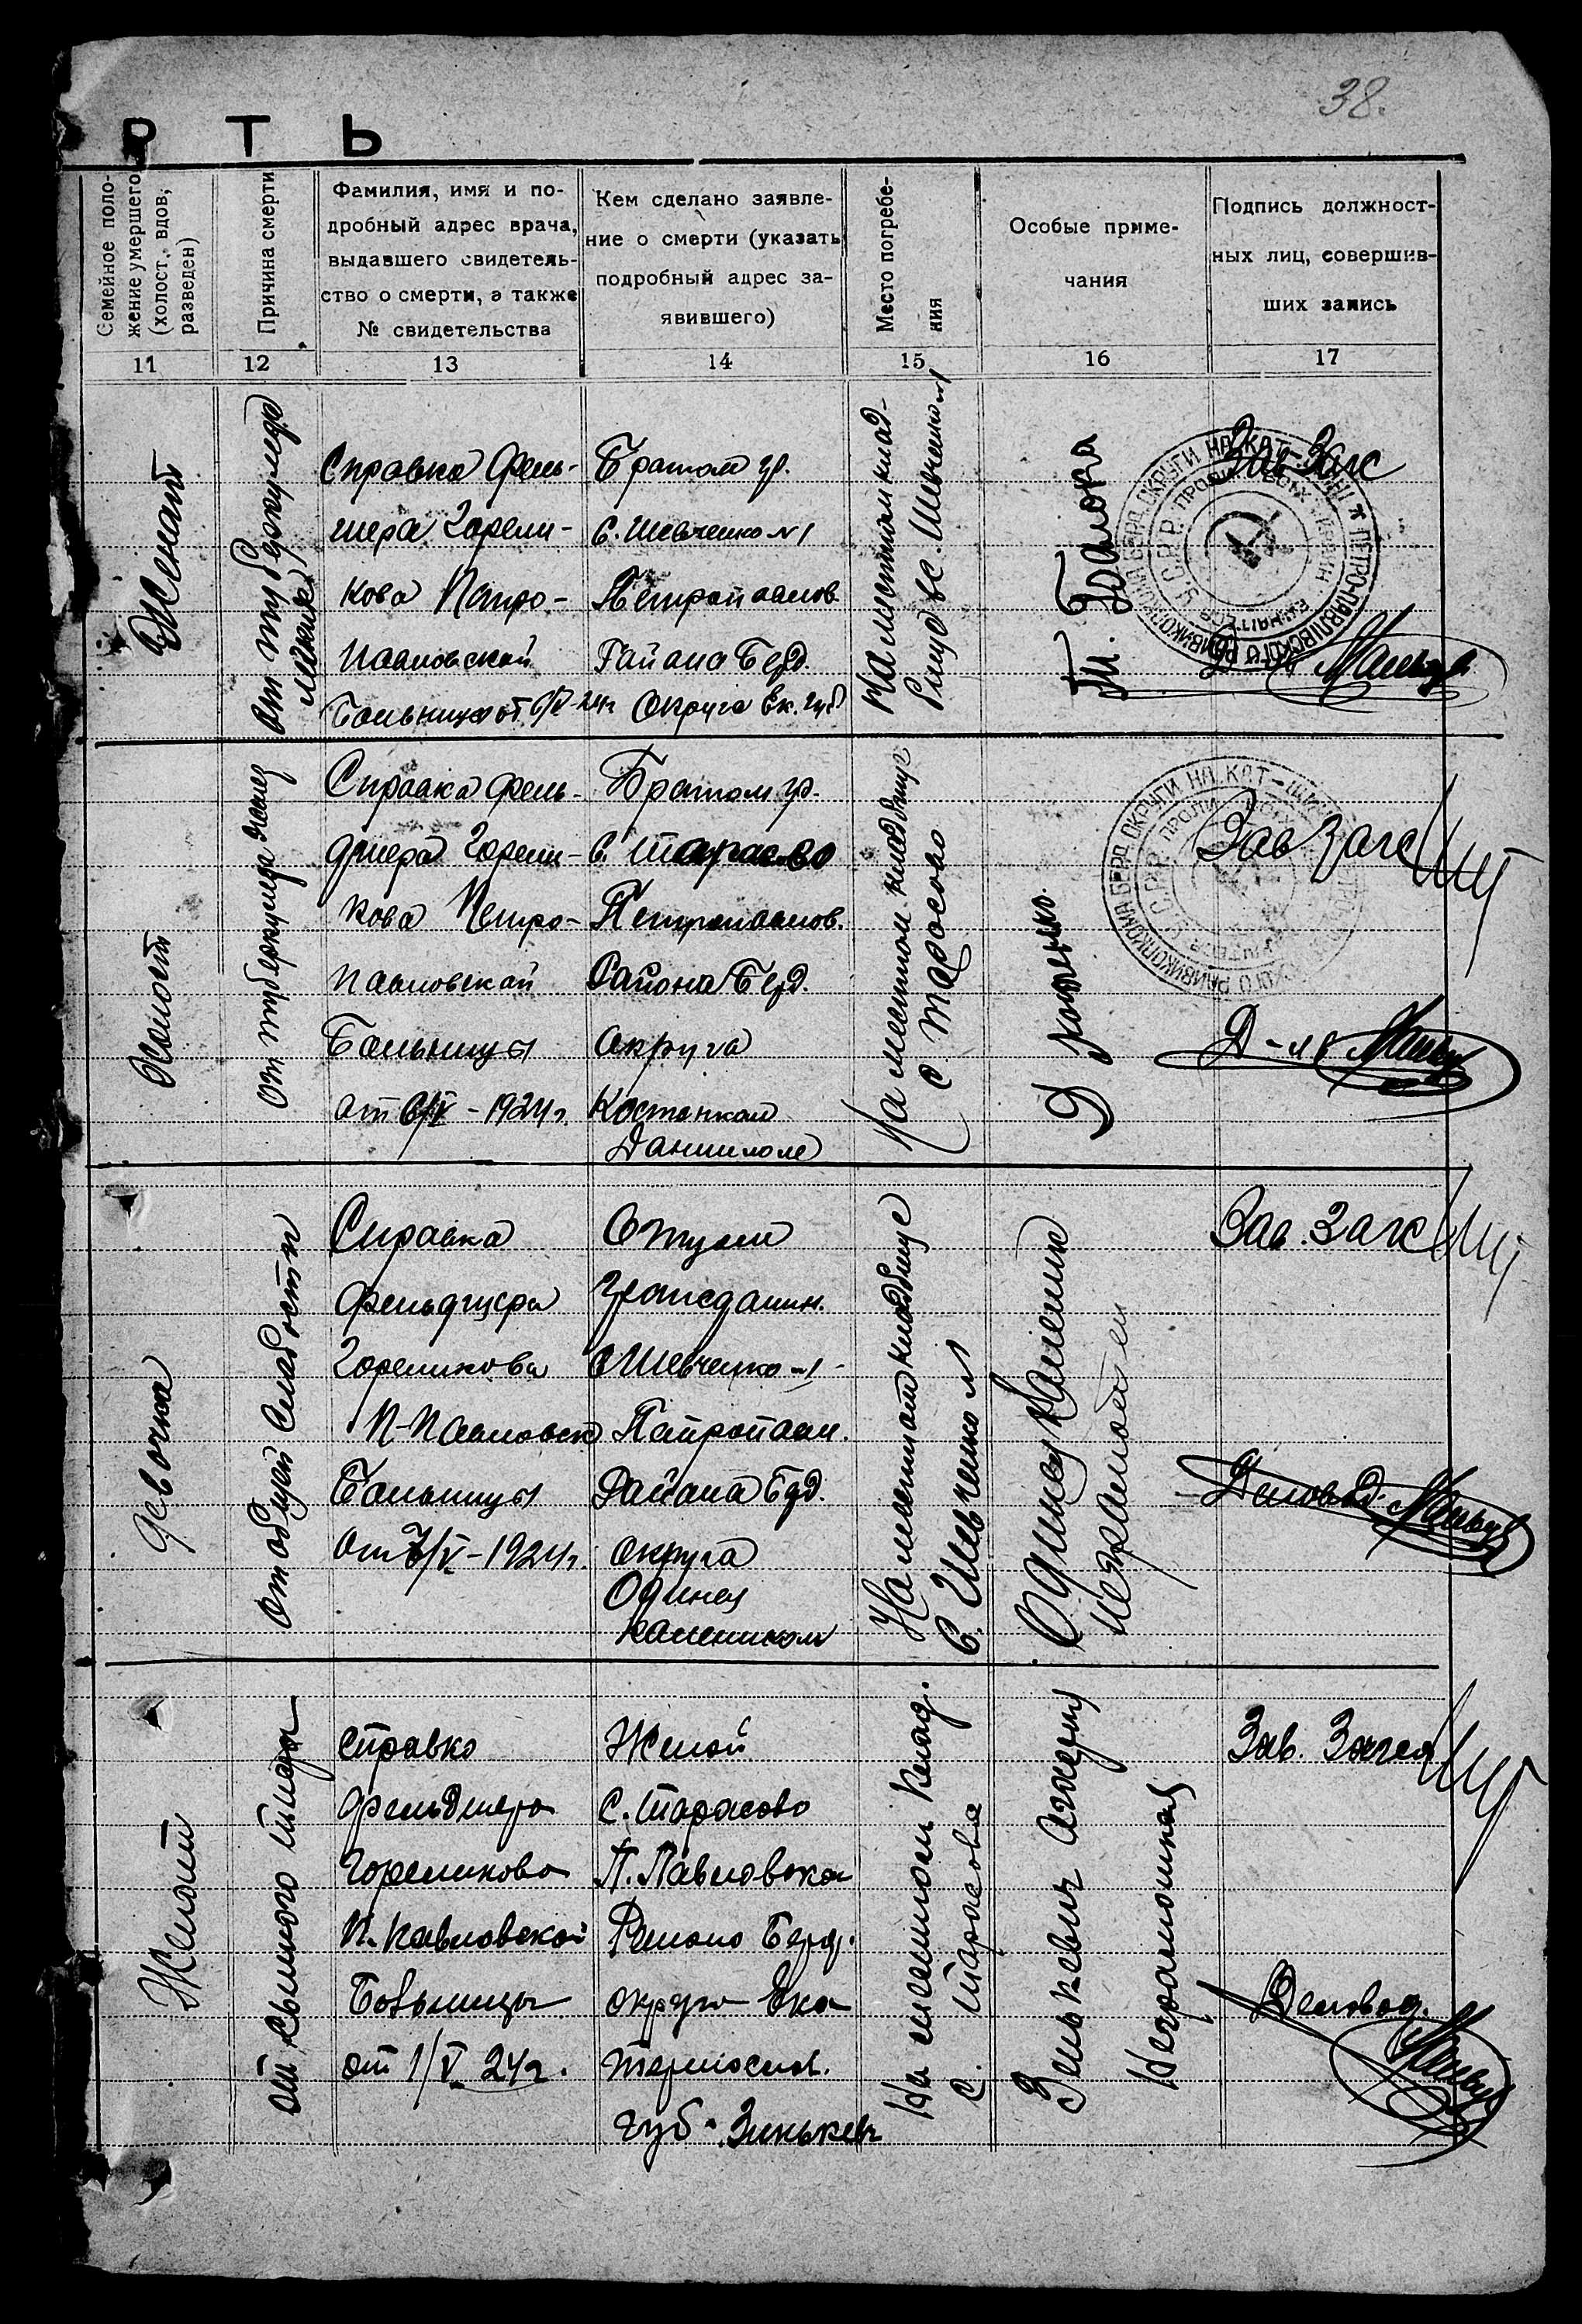 38.
РТЬ
Семейное поло-
жение умершего
(холост, вдов,
разведен)
Причина смерти
Фамилия, имя и по-
дробный адрес врача,
выдавшего свидетель-
ство о смерти, а также
№ свидетельства
Кем сделано заявле-
ние о смерти (указать
подробный адрес за-
явившего)
Место погребе-
ния
Особые приме-
чания
Подпись должност-
ных лиц, совершив-
ших запись
11
12
13
14
15
16
17
Женат
от туберкулеза
легких
Справка фель-
шера Горели-
кова Петро-
павловской
Больницы от
Братом гр.
С. Шевченко №1
Петропавлов.
Района Берд.
Округа Ек. губ
На местном клад-
бище с. Шевченко №1
Зав. Загс
Холост
от туберкулеза
Справка фель-
дшера Горели-
кова Петро-
павловской
Больницы
от 6/V - 1924г.
Братом гр.
с. Тарасово
Петропавлов.
Района Берд.
округа
Костенком
Даниилом
На местном кладбище
с Тарасово
Зав Загс
Девочка
от общей слабости
Справка
Фельдшера
Гореликова
П-Павловск
Больницы
от 7/V - 1924г.
Отцом
Гражданин.
с Шевченко №1
Петропавл.
Района Бд.
округа
Одинец
Калеником
На местном кладбище
С. Шевченко №1
Одинец Каленик
неграмотен
Зав. Загс
Деловод.
Женат
от сыпного тифа
справка
фельдшера
Гореликова
П. Павловской
Больницы
от 1/V 24г.
Женой
с. Тарасово
П. Павловской
Району Берд.
округа Ека
теринослав.
губ. Зинькевич
На местном клад.
с. Тарасова
Зенькевич
Неграмотная
Зав. Загса
Деловод.